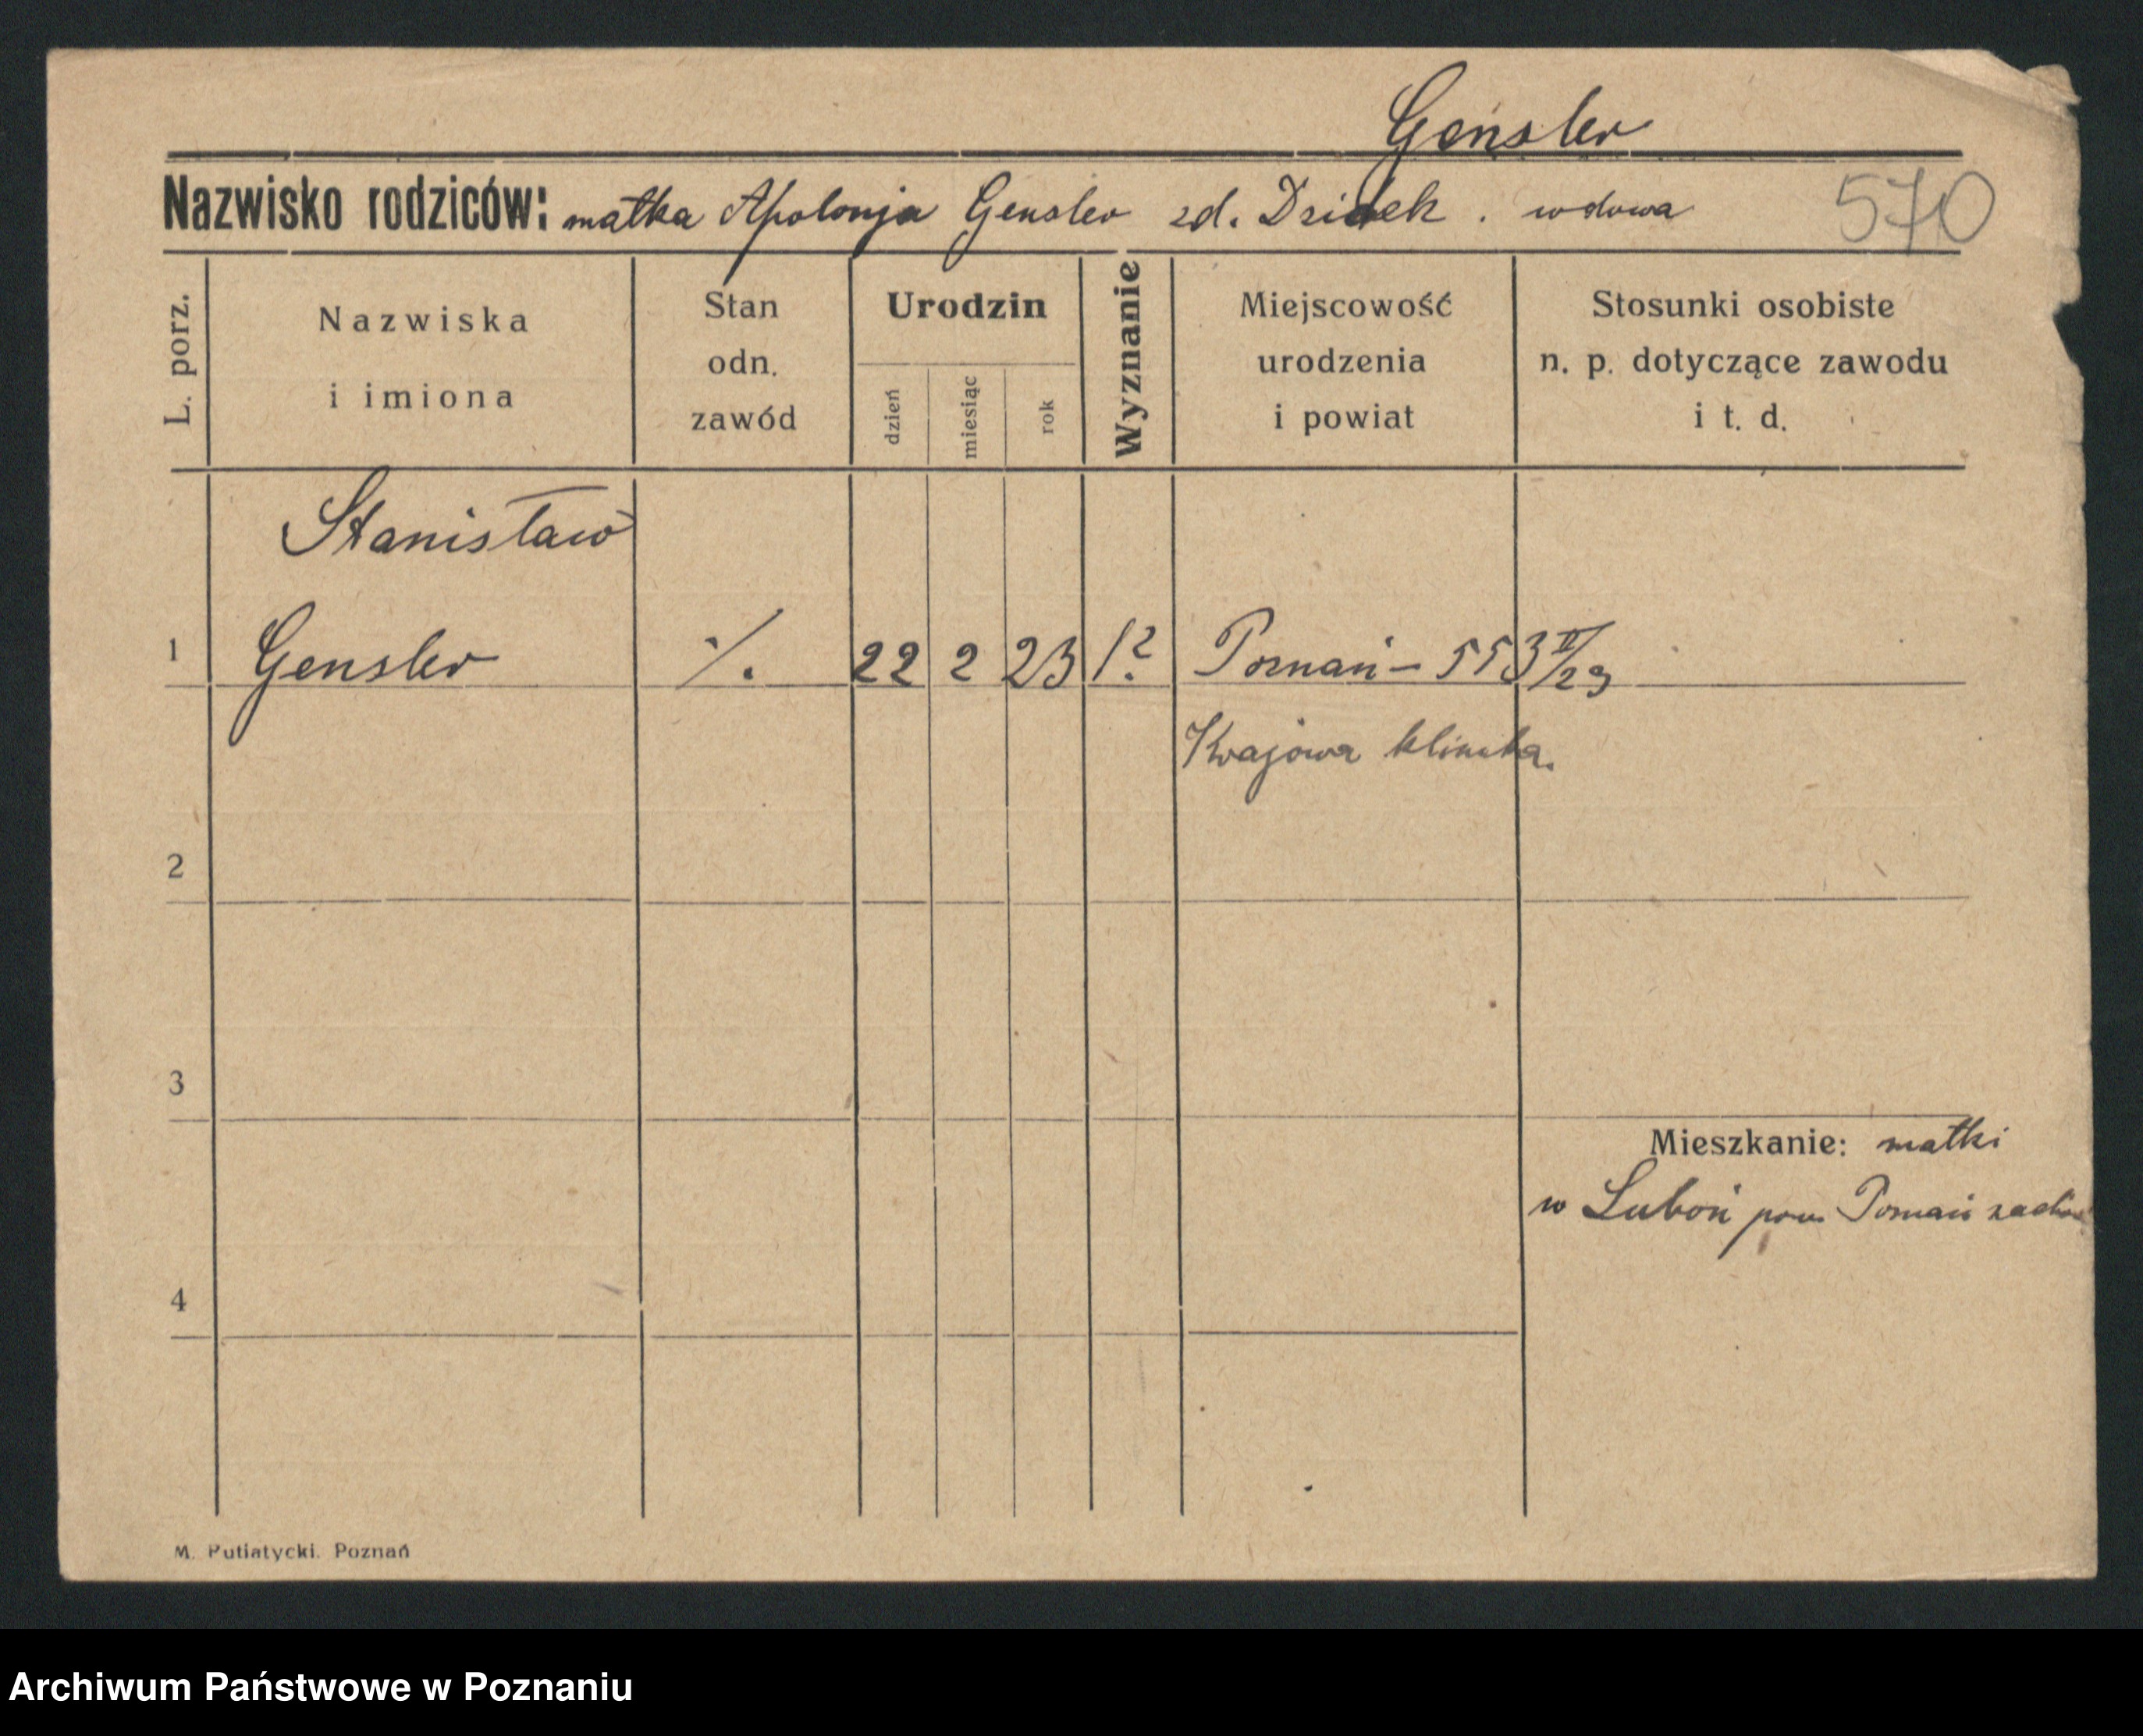 Gensler
Nazwisko rodziców: matka Apolonja Gensler zd. Dzidek . wdowa
570
L. porz.
Nazwiska
i imiona
Stan
odn.
zawód
Urodzin
dzień
miesiąc
rok
Wyznanie
Miejscowość
urodzenia
i powiat
Stosunki osobiste
n. p. dotyczące zawodu
i t. d.
Stanisław
1 Gensler ./. 22 2 23 Poznań – 553 II/23
Krajowa klinika.
2
3
Mieszkanie: matki
w Luboń pow. Poznań zach
4
M. Putiatycki. Poznań
Archiwum Państwowe w Poznaniu